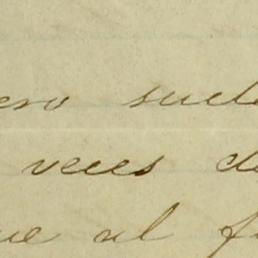 ero suele
veces de
ue al f